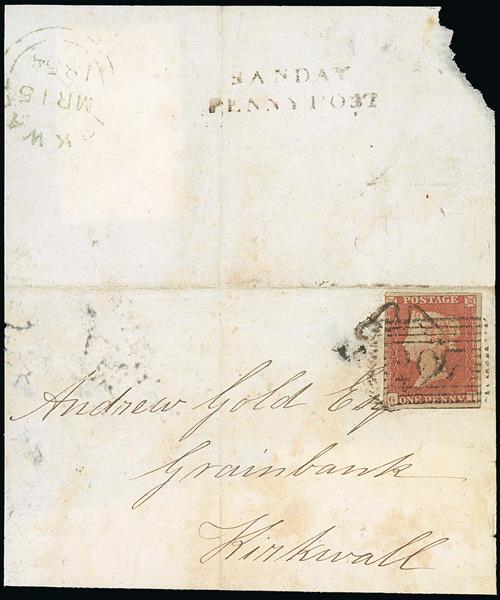 SANDAY
PENNY POST
KIRKWALL
MR 15
1854
POSTAGE
ONE PENNY
Andrew Gold Esq
Grainbank
Kirkwall